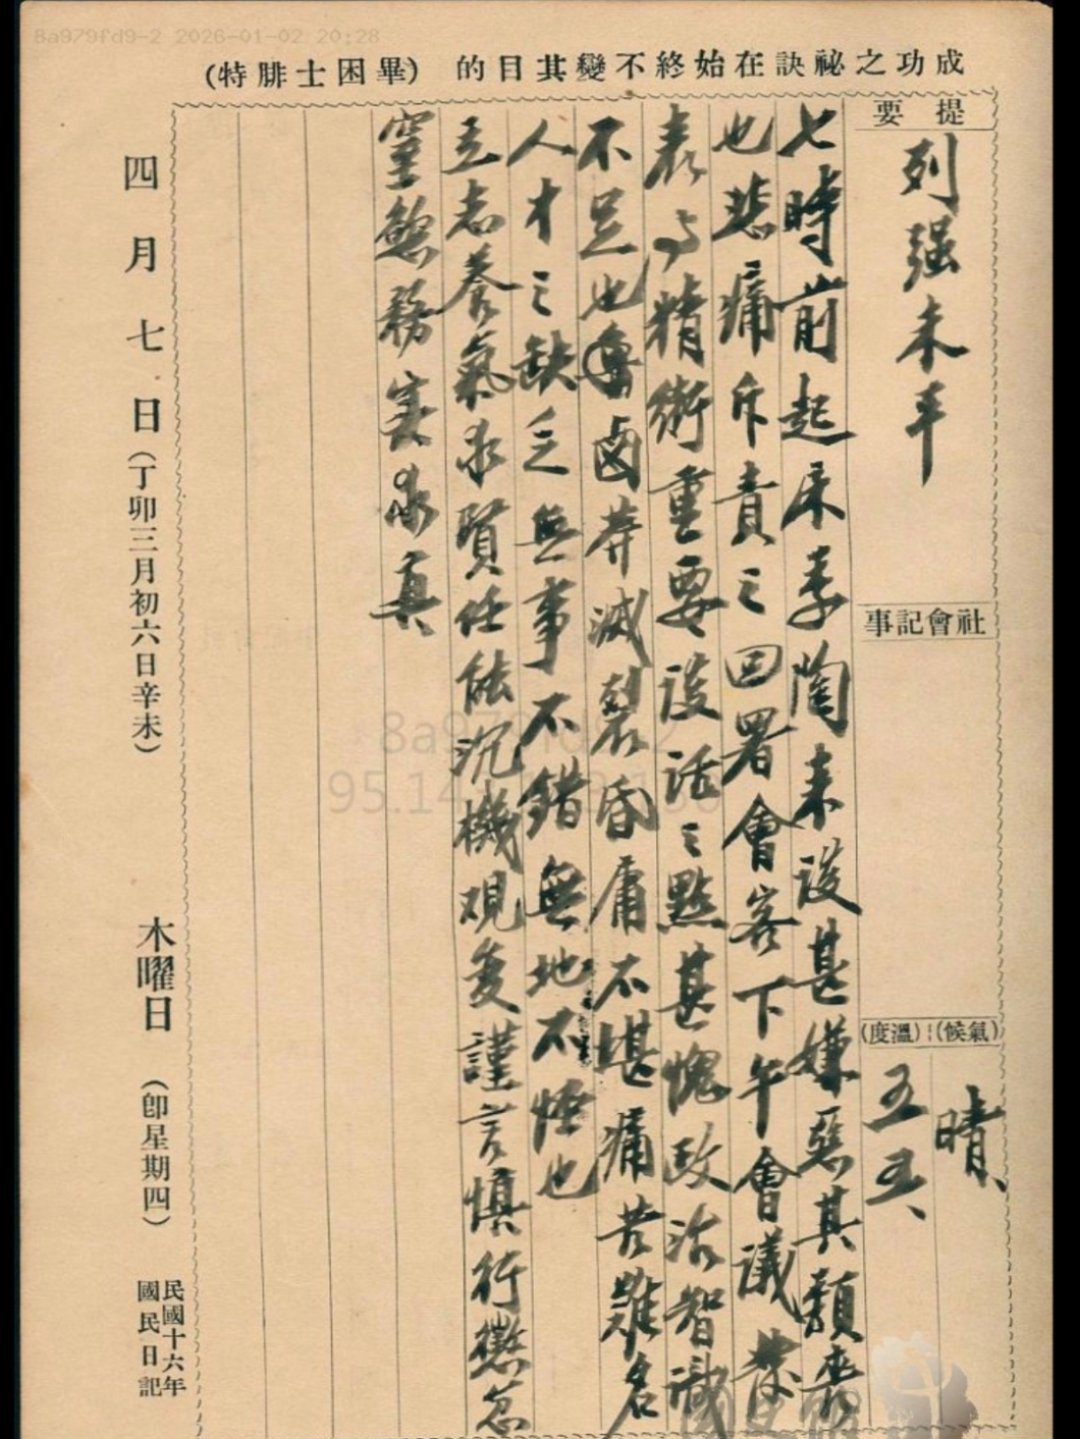 8a979fd9-2 2026-01-02 20:28
成功之祕訣在始終不變其目的　(畢困士腓特)
提要
列强未平
社會記事
(氣候)｜(溫度)
晴、
五五、
七時前起床季陶来談甚嫌惡其頽喪
也悲痛斥責之回署會客下午會議發
表与精衛重要談話之點甚愧政治智識
不足也魯鹵莽滅裂昏庸不堪痛苦難名
人才之缺乏無事不錯無地不怪也
立志養氣求賢任能沉機观变謹言慎行懲忿
窒慾務実求真
四月七日(丁卯三月初六日辛未)　木曜日　(卽星期四)
民國十六年
國民日記
8a979fd9-2